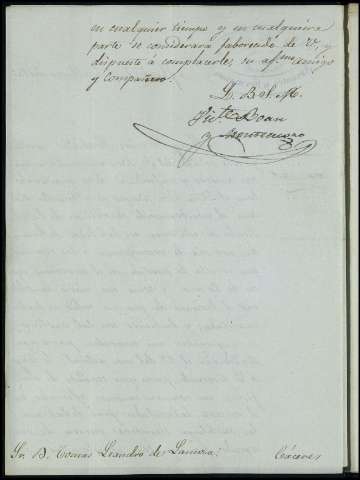 en cualquier tiempo y en cualquiera
parte se considerará faborecido de V., y
dispuesto á complacerle, su af.mo amigo
y Compañero.
L. B. S. M.
Vic.te Boan
y Montenegro
Sr. D. Tomás Leandro de
Cáceres